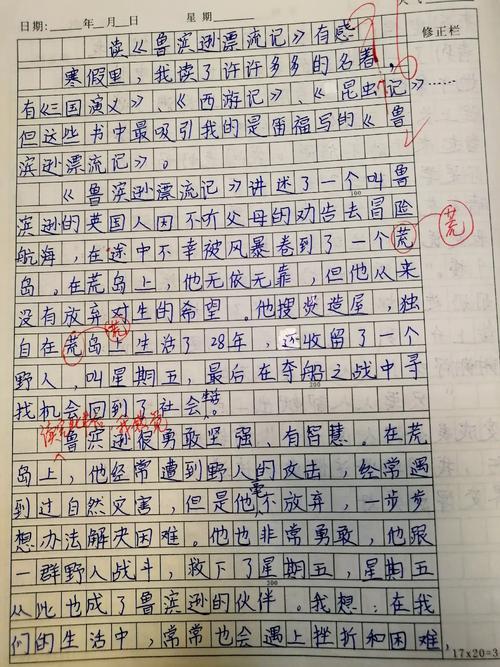 日期: 年 月 日 星 期
修正栏
读《鲁滨逊漂流记》有感
寒假里,我读了许许多多的名著,
有《三国演义》、《西游记》、《昆虫记》……
但这些书中最吸引我的是笛福写的《鲁
滨逊漂流记》。
《鲁滨逊漂流记》讲述了一个叫鲁
100
滨逊的英国人因不听父母的劝告去冒险
航海,在途中不幸被风暴卷到了一个荒
荒
岛。在荒岛上,他无依无靠,但他从来
没有放弃对生的希望。他搜炭造屋,独
荒
自在荒岛上生活了28年,还收留了一个
野人,叫星期五,最后在夺船之战中寻
200
找机会回到了社会。
鲁滨逊很勇敢坚强、有智慧。在荒
岛上,他经常遭到野人的攻击,经常遇
到过自然灾害,但是他毫不放弃,一步步
想办法解决困难。他也非常勇敢,他跟
一群野人战斗,救下了星期五,星期五
300
从此也成了鲁滨逊的伙伴。我想:在我
们的生活中,常常也会遇上挫折和困难,
17×20=3